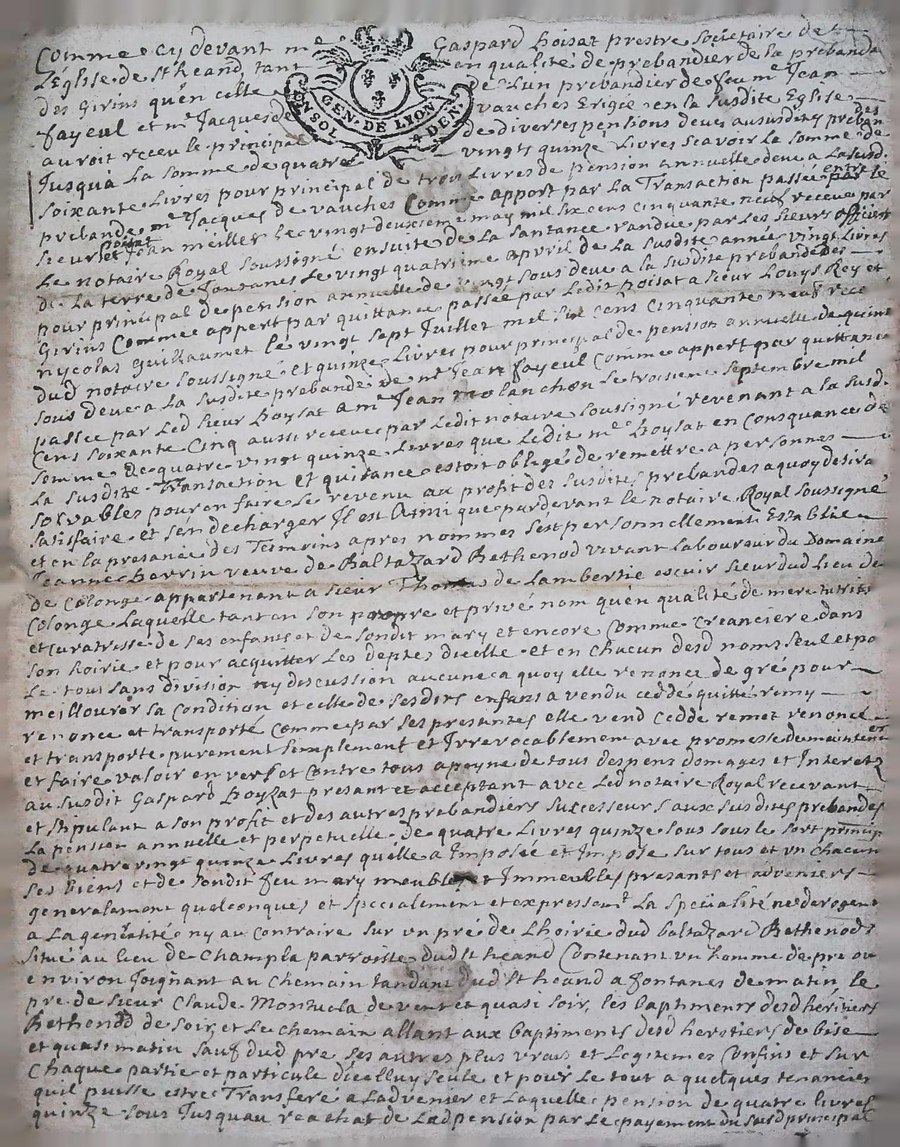 Comme cy devant me Gaspard Boisat prestre Societaire de
L'Eglise de St heand, tant en qualité de prebandier de la prebande
des Girins qu'en celle de L'un prébandier de feu me Jean
fayeul et me Jacques de vauches Erigée en la susdite Eglise
auroit receu le principal de diverses pensions deues aususdites preban des
Jusqu'à La somme de quatre vingts quinze Livres scavoir la somme de
soixante Livres pour principal de trois Livres de pension annuelle deue a la susd.
prebande me Jacques de vauches Comme appert par La Transaction passée entre le
sieur Boisat et Jean meiller le vingt deuxieme may mil six cens cinquante neuf receue par
Le notaire Royal soussigné ensuite de La santance randue par Les sieurs officiers
de La terre de Le vingt quatrieme apvril de La susdite année vingt Livres
pour principal de pension annuelle de vingt sous deue a la susdite prebande des
Girins Comme appert par quittance passée par Ledit Boisat a sieur Louys Rey et
Nycolas Guillaumet le vingt sept Juillet mil six cens cinquante neuf receue
dud notaire soussigné et quinze Livres pour principal de pension annuelle de quinze
sous deue a La susdite prebande de me Jean fayeul Comme appert par quittance
passée par Led sieur Boysat a me Jean molanchon Le troisieme septembre mil
Cens soixante Cinq aussi receue par Ledit notaire soussigné revenant a la susd.
somme de quatre vingt quinze Livres que Ledit me Boysat en Consquance de
La susdite Transaction et quitance estoit obligé de remettre a personnes
solvables pour en faire le revenu au profit des susdites prebandes a quoy desira
satisfaire et s'en decharger Il est Ainsi que pardevant le notaire Royal soussigné
et en la presance des Tesmoins apres nommés s'est personnellement Establie
Jeanne Berrin veuve de Baltazzard Bethenod vivant Laboureur du Domaine
de Colonge appartenant a sieur Thomas de Lambertie escuir sieur dud Lieu de
Colonge Laquelle tant en son propre et privé nom qu'en qualité de mere tutrise
et curatrisse de ses enfants et de sondit mary et encore Comme Creanciere dans
son hoirie et pour acquitter Les deptes d'icelle et en chacun desd noms seul et po
Le tout sans division ny discussion aucune a quoy elle renonce de gré pour
meillourer sa Condition et celle de sesdits enfans a vendu ceddé quitté remy
renoncé et transporté Comme par ses presantes elle vend cedde remet renonce
et transporte purement simplement et Irrevocablement avec promesse de maintenir
et faire valoir envers et Contre tous a peyne de tous despens domages et Interetz
au susdit Gaspard Boyzat presant et acceptant avec Led notaire Royal recevant
et stipulant a son profit et des autres prebandiers successeurs aux susdites prebandes
La pension annuelle et perpetuelle de quatre Livres quinze sous sous le sort princip
de quatre vingt quinze Livres qu'elle a Imposée et Impose sur tous et un chacun
ses biens et de sondit feu mary meubles et Immeubles presants et adveniers
generalement quelconques et specialement et expressemt La specialité ne derogent
a La generalité ny au Contraire sur un pré de L'hoirie dud baltazard Bethenod
situé au lieu de Champla parroisse dud St heand Contenant un homme de pré ou
environ Joignant au Chemain tandant dud St heand a fontanes de matin, le
pré de sieur Claude Montuela de vent et quasi soir, les baptiments desd heritiers
Bethenod de soir, et Le chemain allant aux baptiments desd herittiers de bise
et quasi matin sauf dud pré ses autres plus vrais et Legitimes Confins et sur
Chaque partie et particule d'icelluy seule et pour Le tout a quelques tenancier
qu'il puisse estre Transferé a Ladvenier et Laquelle pension de quatre Livres
quinze sous Jusquau reachat de Ladpension par Le payement du susd principal
GEN. DE LYON